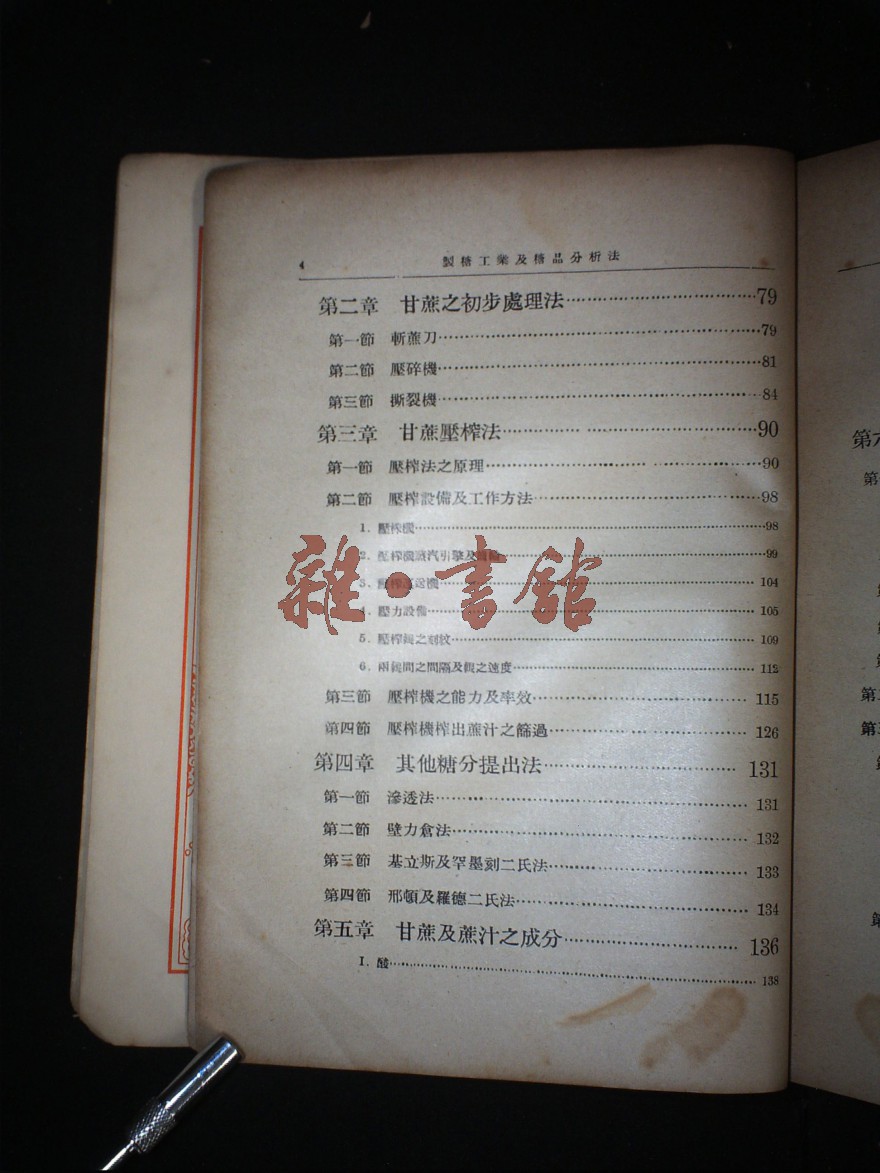 4 製糖工業及糖品分析法
第二章 甘蔗之初步處理法 79
第一節 斬蔗刀 79
第二節 壓碎機 81
第三節 撕裂機 84
第三章 甘蔗壓榨法 90
第一節 壓榨法之原理 90
第二節 壓榨設備及工作方法 98
1. 壓榨機 98
2. 汽引擎及 99
3. 104
4. 壓力設備 105
5. 壓榨 之刻紋 109
6. 兩輥間之間隔及輥之速度 112
第三節 壓榨機之能力及率效 115
第四節 壓榨機榨出蔗汁之篩過 126
第四章 其他糖分提出法 131
第一節 滲透法 131
第二節 壁力倉法 132
第三節 基立斯及罕墨刻二氏法 133
第四節 邢頓及羅德二氏法 134
第五章 甘蔗及蔗汁之成分 136
I. 醣 138
雜·書館
第六
第
第二
第三